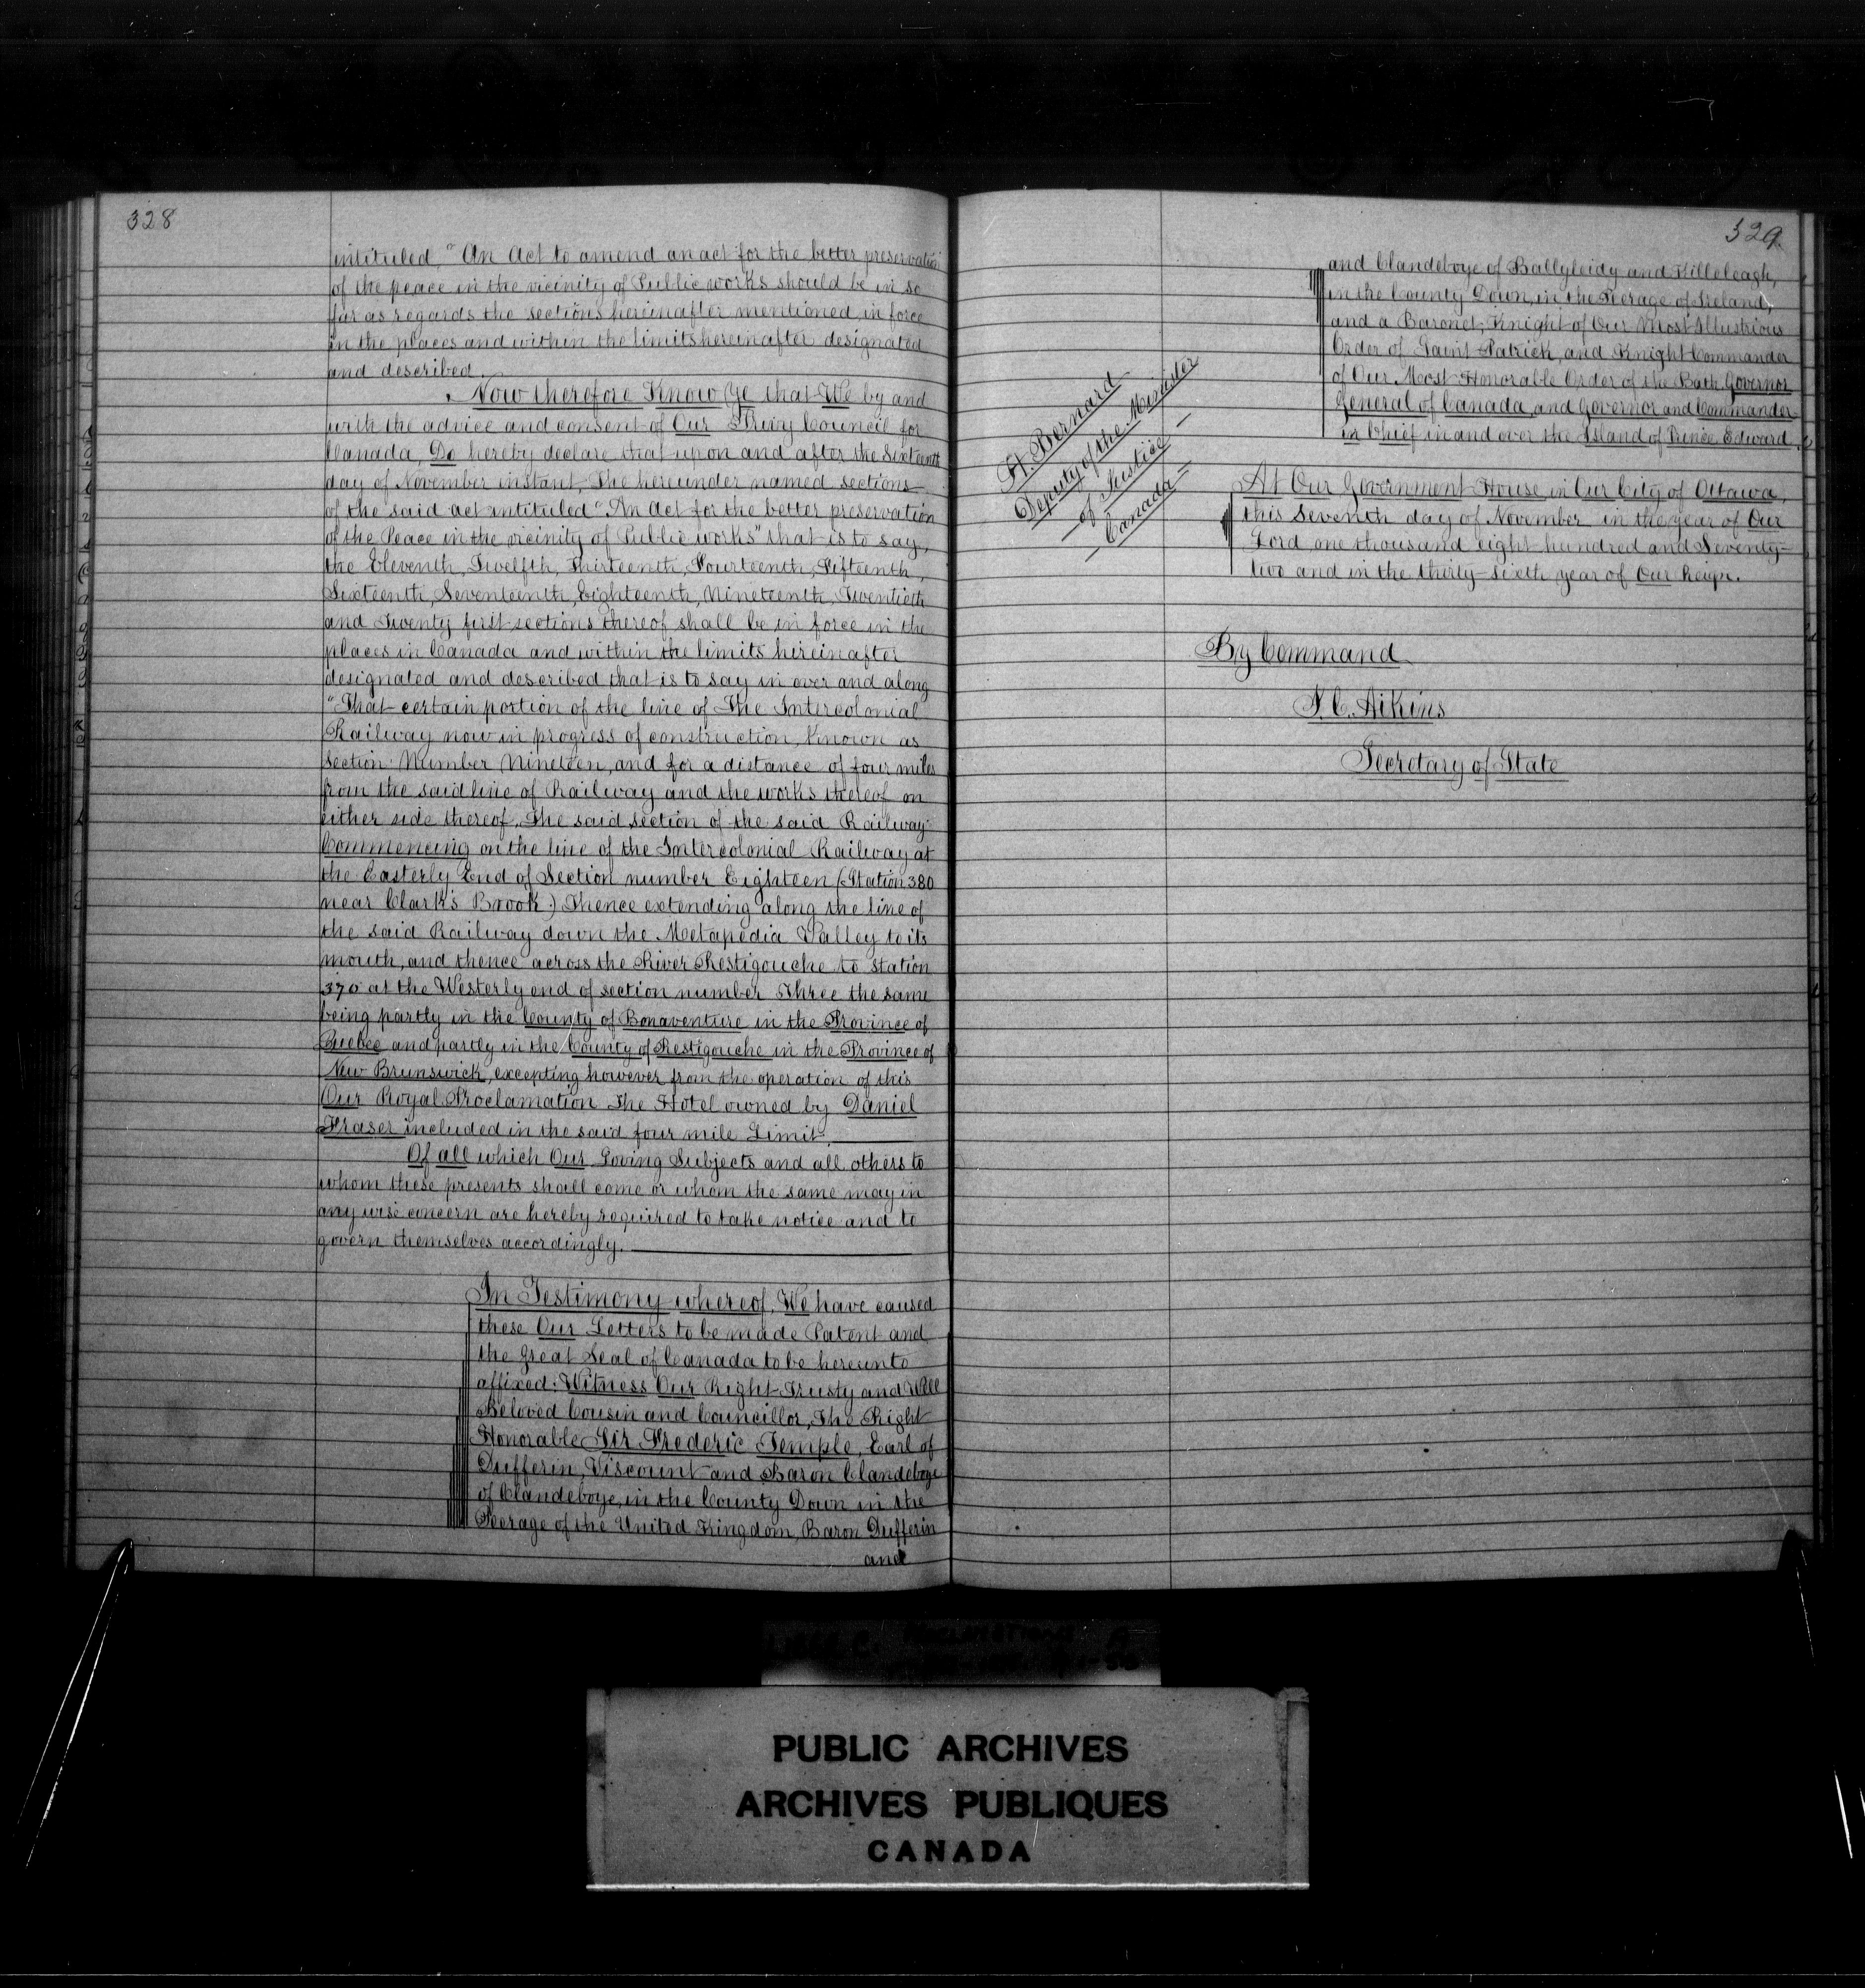 328
intituled, "An Act to amend an act for the better preservation
of the peace in the vicinity of Public works should be in so
far as regards the sections hereinafter mentioned, in force
in the places and within the limits hereinafter designated
and described.
Now therefore Know Ye that We by and
with the advice and consent of Our Privy Council for
Canada, Do hereby declare that upon and after the Sixteenth
day of November instant, The hereunder named sections
of the said act intituled "An Act for the better preservation
of the Peace in the vicinity of Public works" that is to say,
the Eleventh, Twelfth, Thirteenth, Fourteenth, Fifteenth,
Sixteenth, Seventeenth, Eighteenth, Nineteenth, Twentieth
and Twenty first sections thereof shall be in force in the
places in Canada and within the limits hereinafter
designated and described that is to say in over and along
"That certain portion of the line of The Intercolonial
Railway now in progress of construction, Known as
section Number Nineteen, and for a distance of four miles
from the said line of Railway and the works thereof on
either side thereof. The said section of the said Railway
Commencing on the line of the Intercolonial Railway at
the Easterly End of Section number Eighteen (Station 380
near Clark's Brook) Thence extending along the line of
the said Railway down the Metapedia Valley to its
mouth, and thence across the River Restigouche to Station
370 at the Westerly end of section number Three the same
being partly in the County of Bonaventure in the Province of
Quebec and partly in the County of Restigouche in the Province of
New Brunswick, excepting however from the operation of this
Our Royal Proclamation The Hotel owned by Daniel
Fraser included in the said four mile Limit.
Of all which Our Loving Subjects and all others to
whom these presents shall come or whom the same may in
any wise concern are hereby required to take notice and to
govern themselves accordingly.
In Testimony whereof, We have caused
these Our Letters to be made Patent and
the Great Seal of Canada to be hereunto
affixed: Witness Our Right Trusty and Well
Beloved Cousin and Councillor, The Right
Honorable Sir Frederic Temple, Earl of
Dufferin, Viscount and Baron Clandeboye
of Clandeboye, in the County Down in the
Peerage of the United Kingdom, Baron Dufferin
and
329
and Clandeboye of Ballyleidy and Killeleagh,
in the County Down, in the Peerage of Ireland,
and a Baronet, Knight of Our Most Illustrious
Order of Saint Patrick, and Knight Commander
of Our Most Honorable Order of the Bath, Governor
General of Canada, and Governor and Commander
in Chief in and over the Island of Prince Edward.
H. Bernard
Deputy of the Minister
of Justice
Canada
At Our Government House in Our City of Ottawa,
this Seventh day of November in the year of Our
Lord one thousand eight hundred and Seventy-
two and in the thirty-sixth year of Our Reign.
By Command
J. C. Aikins
Secretary of State
PUBLIC ARCHIVES
ARCHIVES PUBLIQUES
CANADA